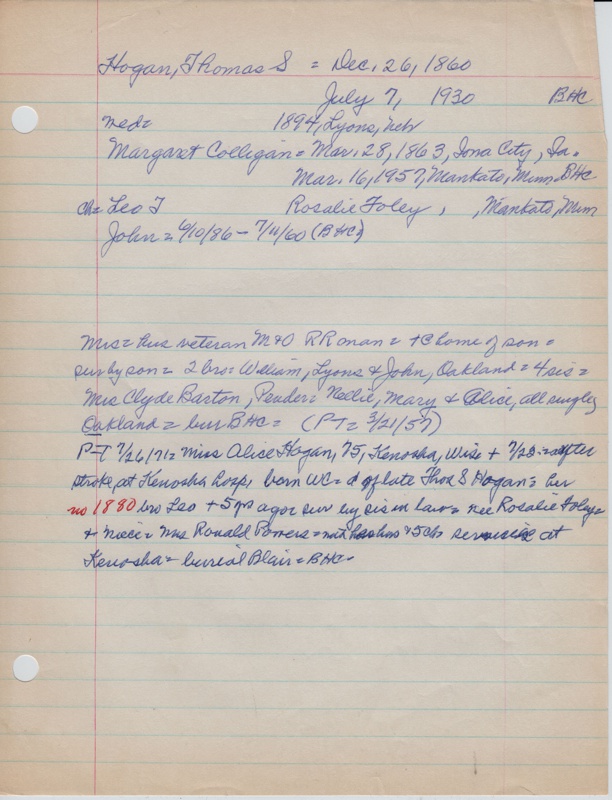 Hogan, Thomas S = Dec. 26, 1860
July 7, 1930 BHC
med= 1894, Lyons, Neb
Margaret Colligan = Mar. 28, 1863, Iona City, Ia.
Mar. 16, 1957, Mankato, Minn BHC
ch= Leo T Rosalie Foley , , Mankato, Minn
John = 6/10/86 - 7/11/60 (BHC)
Mrs = hus veteran M+O RR man = +@ home of son =
sur by son = 2 bro= William, Lyons & John, Oakland = 4 sis =
Mrs Clyde Barton, Pender = Nellie, Mary & Alice, all single,
Oakland = bur BHC = (PT = 3/21/57)
P-T 7/26/71 = Miss Alice Hogan, 75, Kenosha, Wisc + 7/23 = after
stroke, at Kenosha hosp, born WC = d of late Thos S Hogan = her
no 1880 bro Leo + 5 ago = sur by sis in law = nee Rosalie Foley =
+ niece = Mrs Ronald Powers = & 5 ch at
Kenosha = burial Blair = BHC -